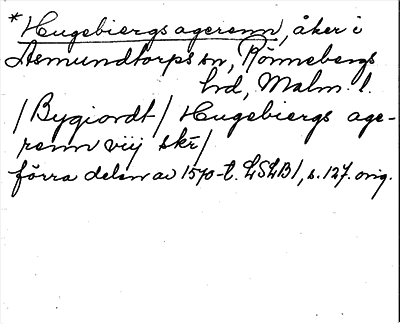 *Hugebiergs agerenn, åker i
Asmundtorps sn, Rönnebergs
hd, Malm. l.
/Bygiordt/ Hugebiergs age-
renn viij skr/
förra delen av 1570-t. LSLB1, s. 127. orig.